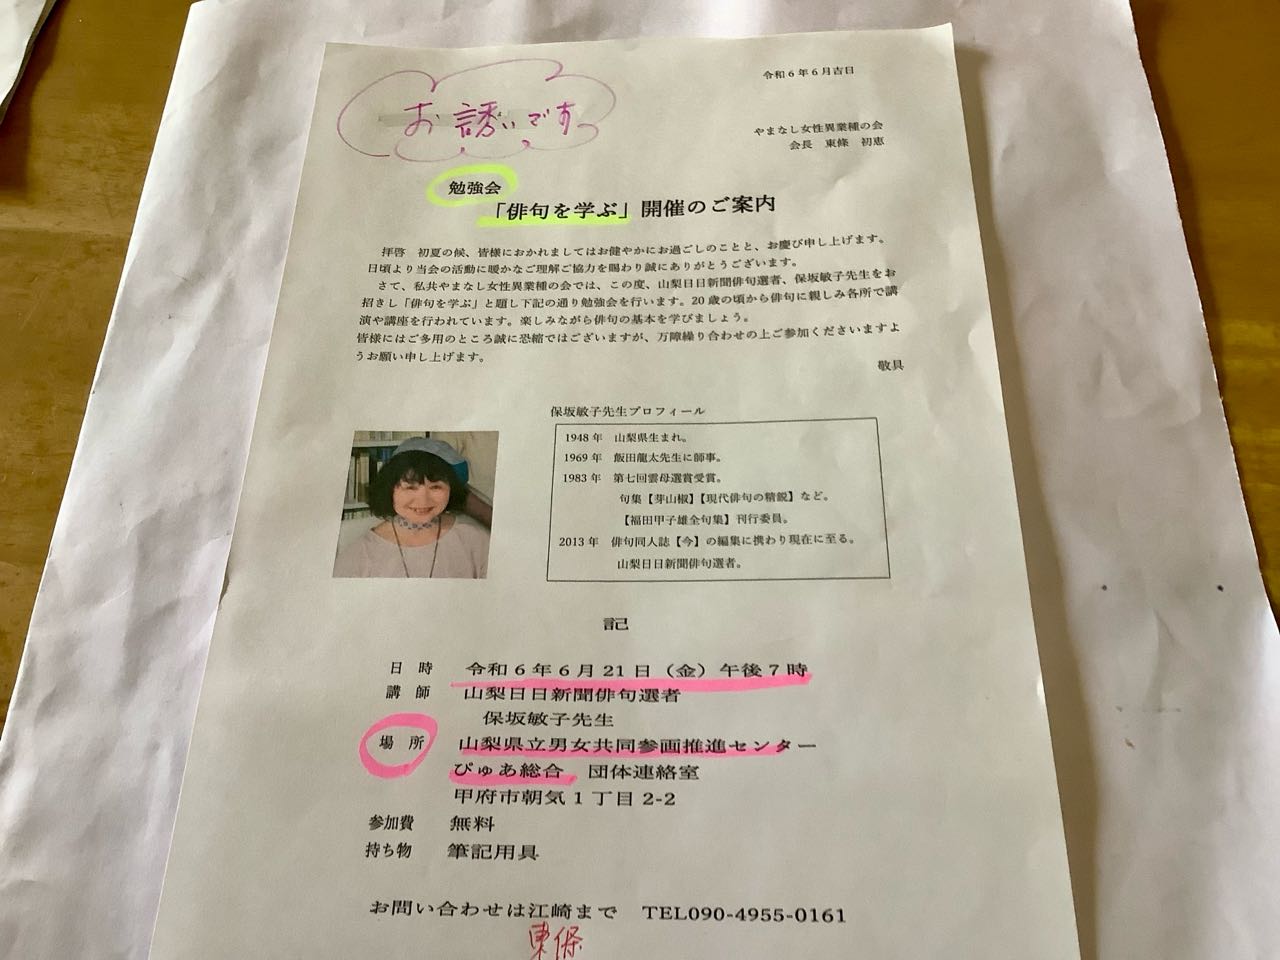 令和6年6月吉日
お誘いです
やまなし女性異業種の会
会長　東條　初恵
勉強会
「俳句を学ぶ」開催のご案内
拝啓　初夏の候、皆様におかれましてはお健やかにお過ごしのことと、お慶び申し上げます。
日頃より当会の活動に暖かなご理解ご協力を賜わり誠にありがとうございます。
さて、私共やまなし女性異業種の会では、この度、山梨日日新聞俳句選者、保坂敏子先生をお
招きし「俳句を学ぶ」と題し下記の通り勉強会を行います。20歳の頃から俳句に親しみ各所で講
演や講座を行われています。楽しみながら俳句の基本を学びましょう。
皆様にはご多用のところ誠に恐縮ではございますが、万障繰り合わせの上ご参加くださいますよ
うお願い申し上げます。
敬具
保坂敏子先生プロフィール
1948年　山梨県生まれ。
1969年　飯田龍太先生に師事。
1983年　第七回雲母選賞受賞。
句集【芽山椒】【現代俳句の精鋭】など。
【福田甲子雄全句集】刊行委員。
2013年　俳句同人誌【今】の編集に携わり現在に至る。
山梨日日新聞俳句選者。
記
日時　令和6年6月21日（金）午後7時
講師　山梨日日新聞俳句選者
保坂敏子先生
場所　山梨県立男女共同参画推進センター
ぴゅあ総合　団体連絡室
甲府市朝気1丁目2-2
参加費　無料
持ち物　筆記用具
お問い合わせは江崎まで　TEL090-4955-0161
東條